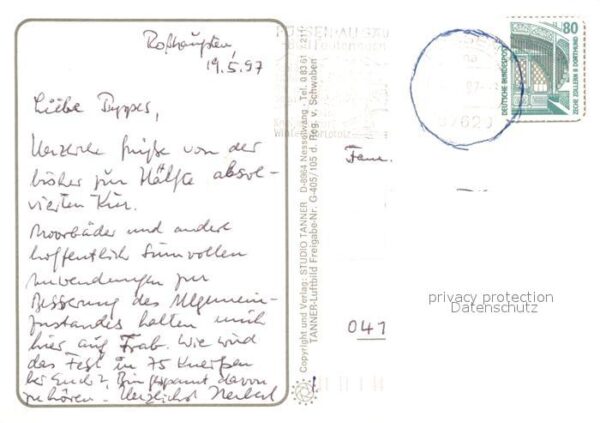 Roßhaupten,
19.5.97
Liebe
Herzliche Grüße von der
bisher zur Hälfte absol-
vierten Kur.
Moorbäder und andere
hoffentlich sinnvollen
Anwendungen zur
Besserung des Allgemein-
zustandes halten mich
hier auf Trab. Wie wird
das Fest in 75
bei Euch? Bin gespannt davon
zu hören. Herzlichst Herbert
Copyright und Verlag: STUDIO TANNER D-8964 Nesselwang - Tel. 0 83 61 / 211
TANNER-Luftbild Freigabe-Nr. G-405/105 d. Reg. v. Schwaben
FÜSSEN-ALLGÄU
80
DEUTSCHE BUNDESPOST
ZECHE ZOLLERN II · DORTMUND
Fam.
041
privacy protection
Datenschutz